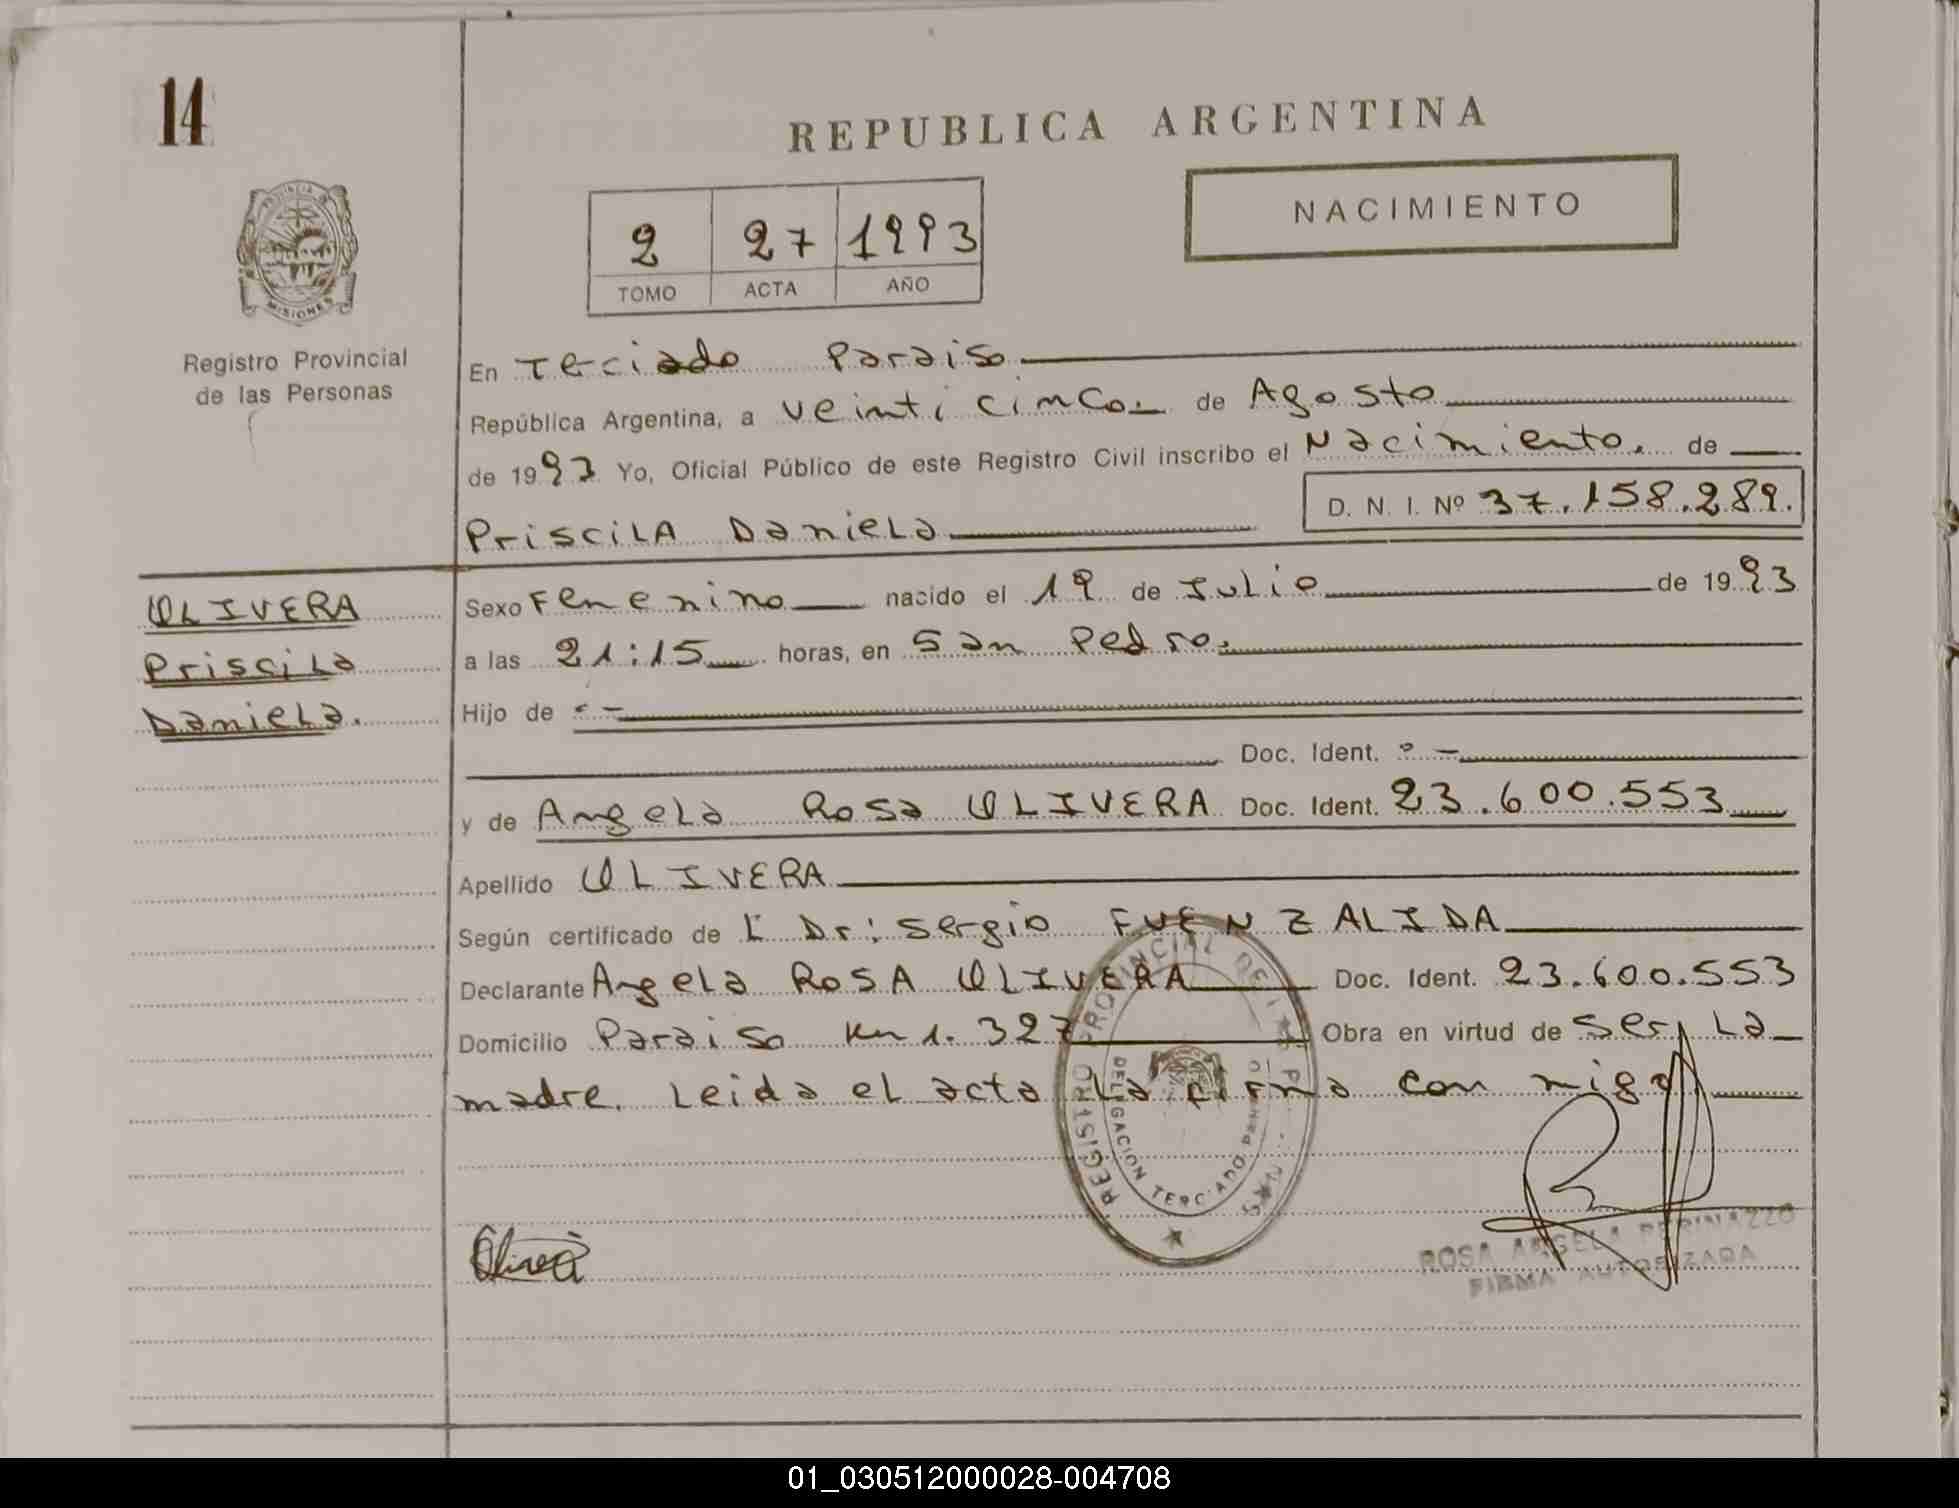 14
REPUBLICA ARGENTINA
NACIMIENTO
2 27 1993
TOMO ACTA AÑO
PROVINCIA
MISIONES
Registro Provincial
de las Personas
En Teciado Paraiso
República Argentina, a veinti cinco de Agosto
de 1993 Yo, Oficial Público de este Registro Civil inscribo el Nacimiento. de
D. N. I. Nº 37.158.289.
PriscilA Daniela
OLIVERA
Priscila
Daniela.
Sexo Femenino nacido el 19 de Julio de 1993
a las 21:15 horas, en San Pedro.
Hijo de
Doc. Ident.
y de Angela Rosa OLIVERA Doc. Ident. 23.600.553
Apellido OLIVERA
Según certificado de L Dr: Sergio FUENZALIDA
Declarante Angela ROSA OLIVERA Doc. Ident. 23.600.553
Domicilio Paraiso Km 1.327 Obra en virtud de ser La
madre. Leida el acta La firma con migo
REGISTRO PROVINCIAL DE
DELEGACION TERCIADO
Olivera
ROSA ANGELA PERINAZZO
FIRMA AUTORIZADA
01_030512000028-004708